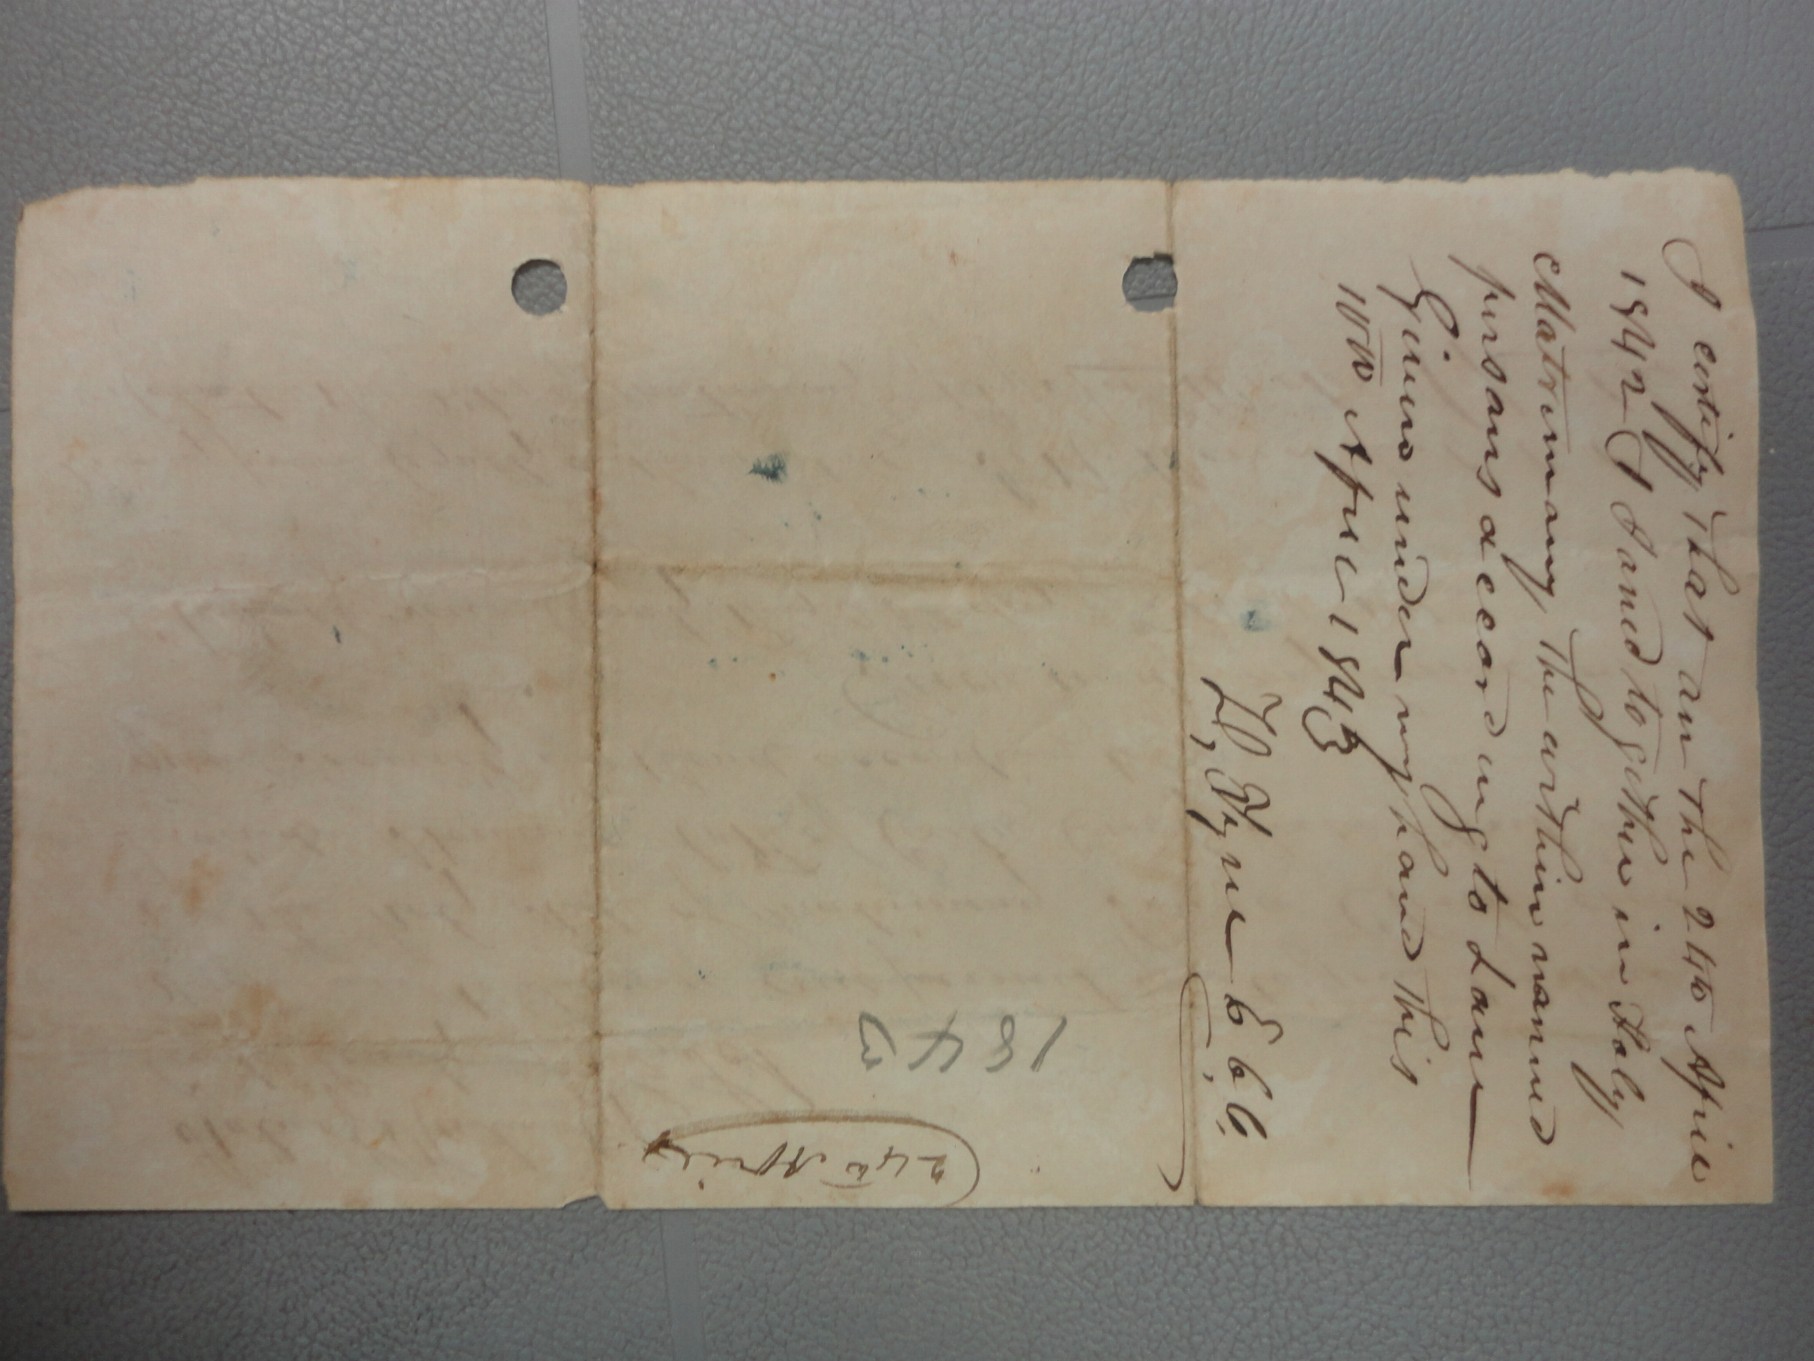 I certify That an The 24th April
1842 I Joined together in Holy
Matrimony The within named
persons according to Law
Given under my hand This
10th April 1843
1843
24th April